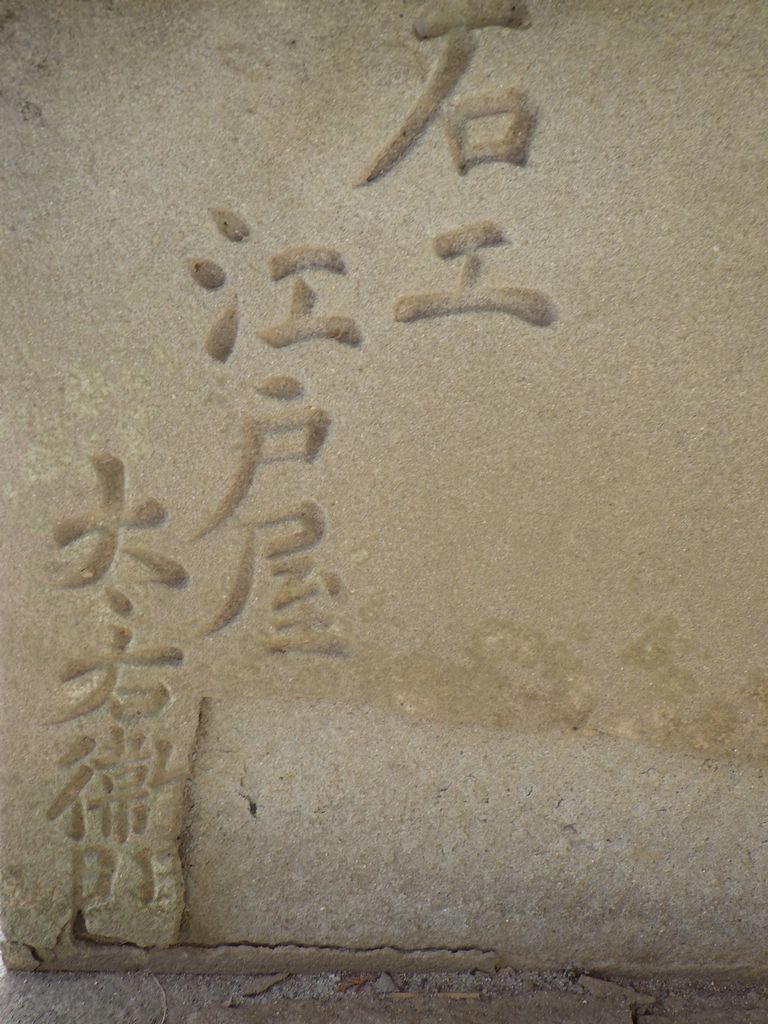 石工
江戸屋
太右衛門